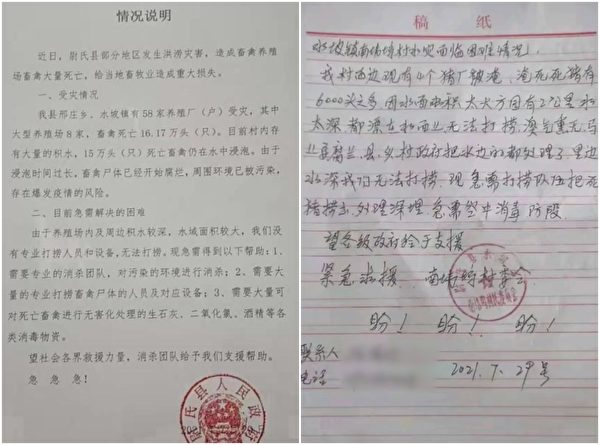 情况说明
近日，尉氏县部分地区发生洪涝灾害，造成畜禽养殖
场畜禽大量死亡，给当地畜牧业造成重大损失。
一、受灾情况
我县邢庄乡、水坡镇有 58 家养殖厂（户）受灾，其中
大型养殖场 8 家，畜禽死亡 16.17 万头（只）。目前村内存
有大量的积水，15 万头（只）死亡畜禽仍在水中浸泡。由于
浸泡时间过长，畜禽尸体已经开始腐烂，周围环境已被污染，
存在爆发疫情的风险。
二、目前急需解决的困难
由于养殖场内及周边积水较深，水域面积较大，我们没
有专业打捞人员和设备，无法打捞。现急需得到以下帮助：1、
需要专业的消杀团队，对污染的环境进行消杀；2、需要大
量的专业打捞畜禽尸体的人员及对应设备；3、需要大量可
对死亡畜禽进行无害化处理的生石灰、二氧化氯、酒精等各
类消毒物资。
望社会各界救援力量，消杀团队给予我们支援帮助。
急 急 急！
尉氏县人民政府
稿 纸
水坡镇南 村水灾面临困难情况
我村西边现有4个猪厂被淹，淹死死猪有
6000头之多 因水面面积太大方园有2公里水
太深 都漂在水面上无法打捞
县、乡村政府把水边的都处理了里边
水深我们无法打捞. 现急需打捞队伍把死
猪捞出.处理深埋.急需空中消毒阶段
望各级政府给于支援
紧急求援 南 村委会
盼！ 盼！ 盼！
联系人
电话
2021.7.29号